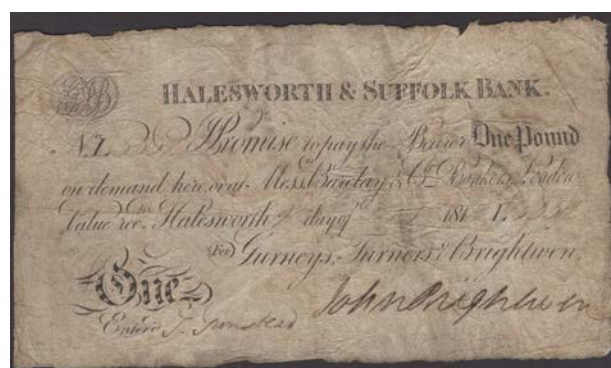 HALESWORTH & SUFFOLK BANK.
I Promise to pay the Bearer One Pound
on demand here, or at Messrs Barclay & Co. Bankers London
Value recd. Halesworth day of 181
(For) Gurneys, Turners & Brightwen.
One
John Brightwen
Enterd